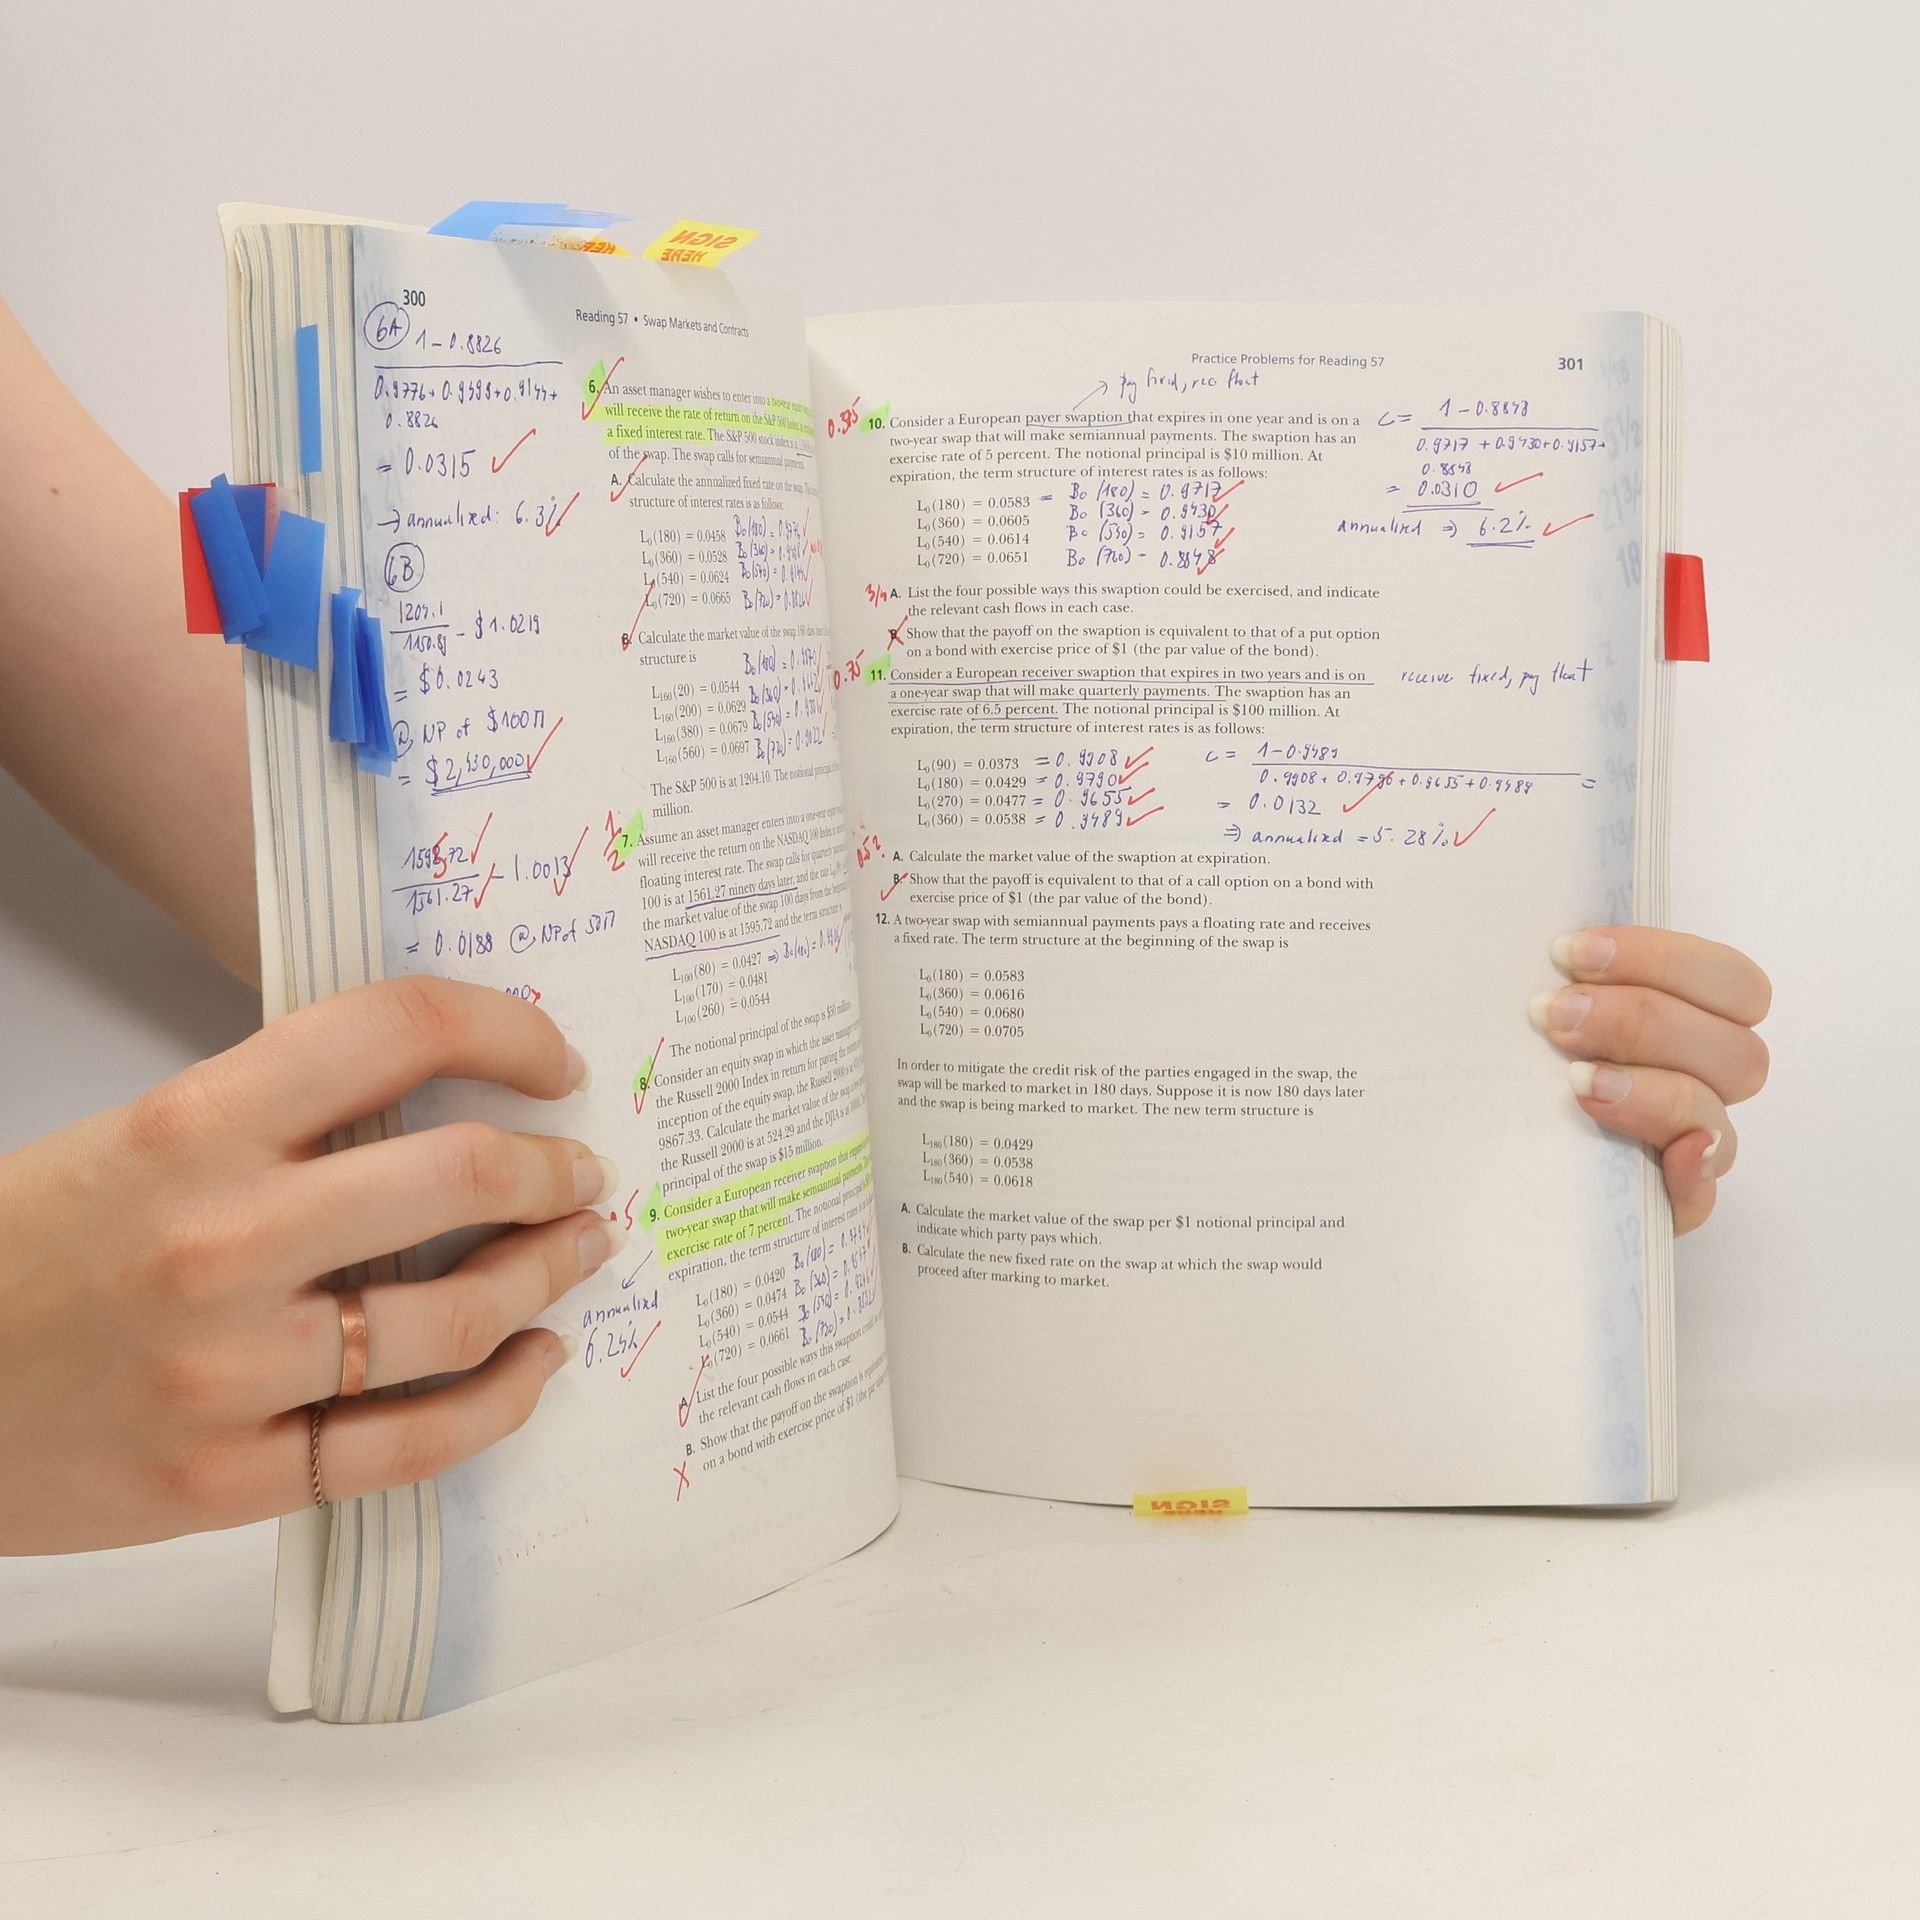 SIGN
HERE
300
Reading 57 • Swap Markets and Contracts
6A
1 - 0.8826
0.9776 + 0.9499 + 0.9144 +
0.8826
= 0.0315
→ annualized: 6.3%
6B
1204.1
1150.89
- $1.0219
= $0.0243
@ NP of $100M
= $2,430,000
1595.72
1561.27
- 1.0013
= 0.0188 @ NP of 50M
6. An asset manager wishes to enter into a two-year equity
will receive the rate of return on the S&P 500 Index
a fixed interest rate. The S&P 500 stock index is
of the swap. The swap calls for semiannual payments.
A. Calculate the annualized fixed rate on the swap. The
structure of interest rates is as follows:
L0(180) = 0.0458
L0(360) = 0.0528
L0(540) = 0.0624
L0(720) = 0.0665
B. Calculate the market value of the swap 160 days
structure is
L160(20) = 0.0544
L160(200) = 0.0629
L160(380) = 0.0679
L160(560) = 0.0697
The S&P 500 is at 1204.10. The notional principal
million.
1/2
7. Assume an asset manager enters into a one-year equity
will receive the return on the NASDAQ 100 Index
floating interest rate. The swap calls for quarterly
100 is at 1561.27 ninety days later, and the rate
the market value of the swap 100 days from the
NASDAQ 100 is at 1595.72 and the term structure
L100(80) = 0.0427
L100(170) = 0.0481
L100(260) = 0.0544
The notional principal of the swap is $50 million.
8. Consider an equity swap in which the asset manager
the Russell 2000 Index in return for paying the return
inception of the equity swap, the Russell 2000 is at
9867.33. Calculate the market value of the swap
the Russell 2000 is at 524.29 and the DJIA is at
principal of the swap is $15 million.
9. Consider a European receiver swaption that expires
two-year swap that will make semiannual payments. The
exercise rate of 7 percent. The notional principal
expiration, the term structure of interest rates is
L0(180) = 0.0420
L0(360) = 0.0474
L0(540) = 0.0544
L0(720) = 0.0661
annualized
6.25%
A. List the four possible ways this swaption could
the relevant cash flows in each case.
B. Show that the payoff on the swaption is equivalent
on a bond with exercise price of $1 (the par
Practice Problems for Reading 57
301
→ pay fixed, rec float
10. Consider a European payer swaption that expires in one year and is on a
two-year swap that will make semiannual payments. The swaption has an
exercise rate of 5 percent. The notional principal is $10 million. At
expiration, the term structure of interest rates is as follows:
L0(180) = 0.0583 = B0 (180) = 0.9717
L0(360) = 0.0605 B0 (360) = 0.9430
L0(540) = 0.0614 B0 (540) = 0.9157
L0(720) = 0.0651 B0 (720) = 0.8848
c = 1 - 0.8848
0.9717 + 0.9430 + 0.9157 +
0.8848
= 0.0310
annualized ⇒ 6.2%
3/4
A. List the four possible ways this swaption could be exercised, and indicate
the relevant cash flows in each case.
B. Show that the payoff on the swaption is equivalent to that of a put option
on a bond with exercise price of $1 (the par value of the bond).
0.75
11. Consider a European receiver swaption that expires in two years and is on
a one-year swap that will make quarterly payments. The swaption has an
exercise rate of 6.5 percent. The notional principal is $100 million. At
expiration, the term structure of interest rates is as follows:
receive fixed, pay float
L0(90) = 0.0373 = 0.9908
L0(180) = 0.0429 = 0.9790
L0(270) = 0.0477 = 0.9655
L0(360) = 0.0538 = 0.9489
c = 1 - 0.9489
0.9908 + 0.9790 + 0.9655 + 0.9489 =
= 0.0132
⇒ annualized = 5.28%
A. Calculate the market value of the swaption at expiration.
B. Show that the payoff is equivalent to that of a call option on a bond with
exercise price of $1 (the par value of the bond).
12. A two-year swap with semiannual payments pays a floating rate and receives
a fixed rate. The term structure at the beginning of the swap is
L0(180) = 0.0583
L0(360) = 0.0616
L0(540) = 0.0680
L0(720) = 0.0705
In order to mitigate the credit risk of the parties engaged in the swap, the
swap will be marked to market in 180 days. Suppose it is now 180 days later
and the swap is being marked to market. The new term structure is
L180(180) = 0.0429
L180(360) = 0.0538
L180(540) = 0.0618
A. Calculate the market value of the swap per $1 notional principal and
indicate which party pays which.
B. Calculate the new fixed rate on the swap at which the swap would
proceed after marking to market.
SIGN